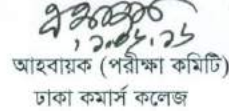 আহবায়ক (পরীক্ষা কমিটি)
ঢাকা কমার্স কলেজ